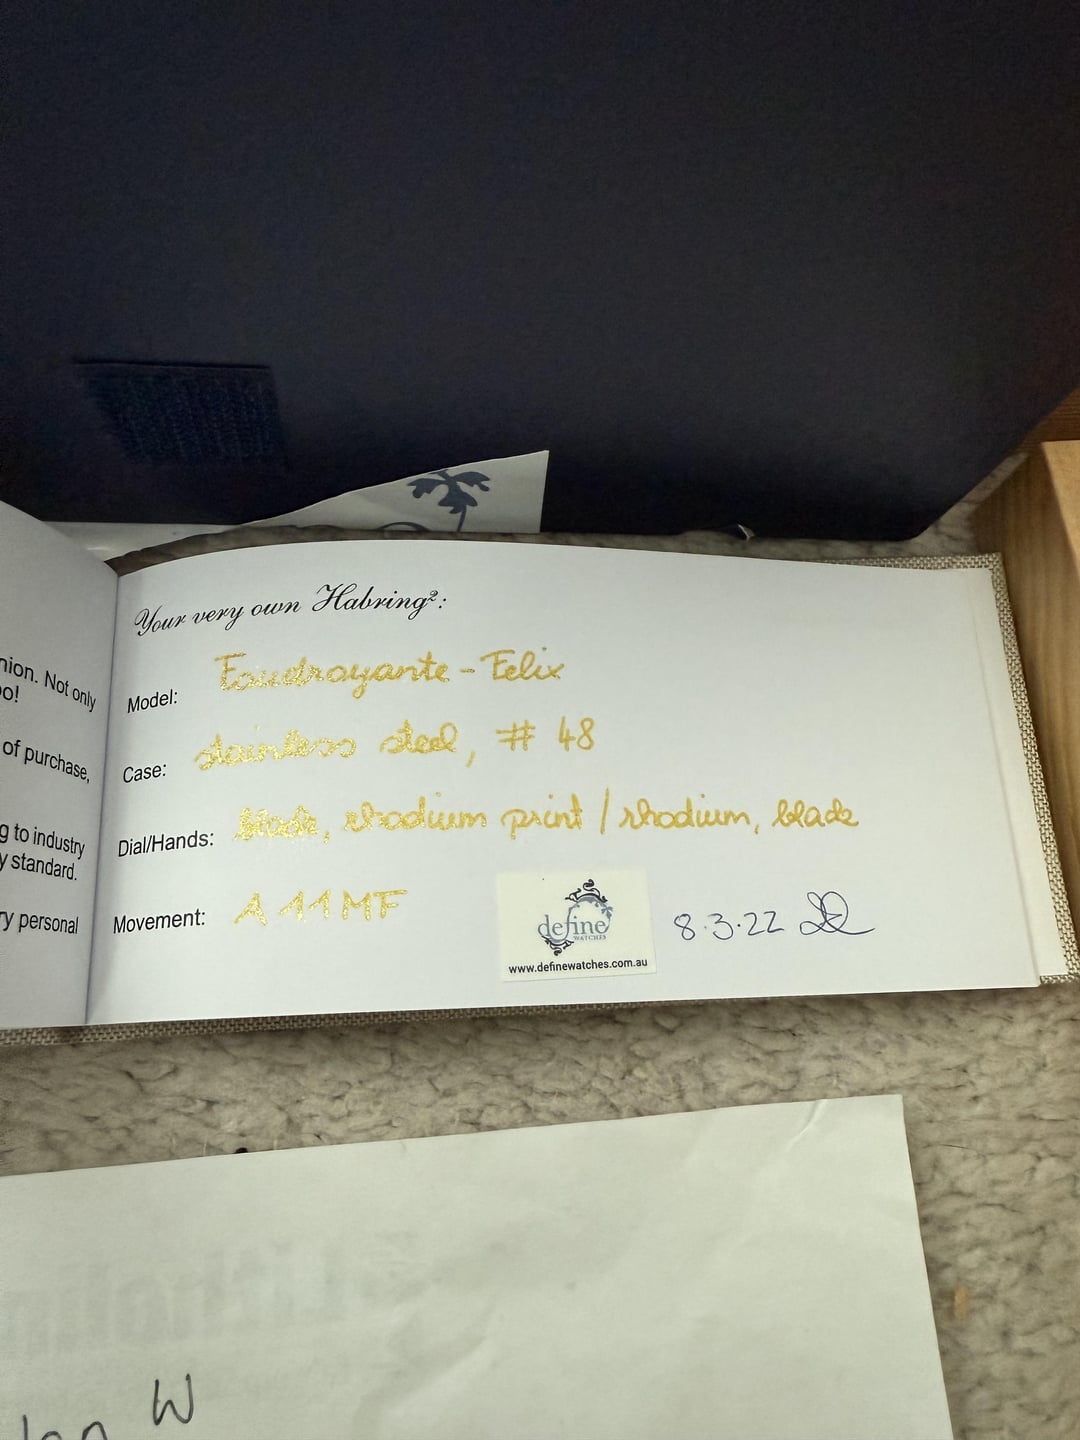 nion. Not only
oo!
of purchase,
g to industry
y standard.
ry personal
Your very own Habring²:
Model: Foudroyante-Felix
Case: stainless steel, # 48
Dial/Hands: black, rhodium print / rhodium, black
Movement: A11MF
define
WATCHES
www.definewatches.com.au
8.3.22
W